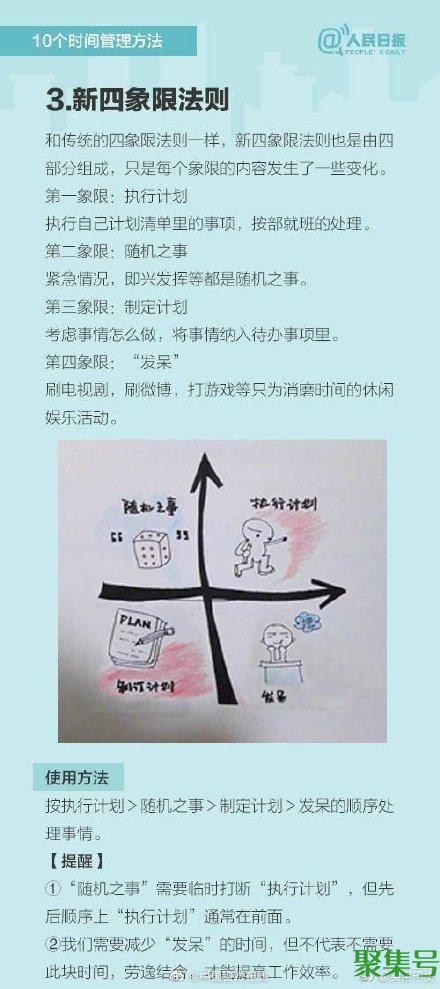 10个时间管理方法
@人民日报
PEOPLE'S DAILY
3.新四象限法则
和传统的四象限法则一样，新四象限法则也是由四
部分组成，只是每个象限的内容发生了一些变化。
第一象限：执行计划
执行自己计划清单里的事项，按部就班的处理。
第二象限：随机之事
紧急情况，即兴发挥等都是随机之事。
第三象限：制定计划
考虑事情怎么做，将事情纳入待办事项里。
第四象限：“发呆”
刷电视剧，刷微博，打游戏等只为消磨时间的休闲
娱乐活动。
随机之事
执行计划
PLAN
制订计划
发呆
使用方法
按执行计划＞随机之事＞制定计划＞发呆的顺序处
理事情。
【提醒】
①“随机之事”需要临时打断“执行计划”，但先
后顺序上“执行计划”通常在前面。
②我们需要减少“发呆”的时间，但不代表不需要
此块时间，劳逸结合，才能提高工作效率。
聚集号